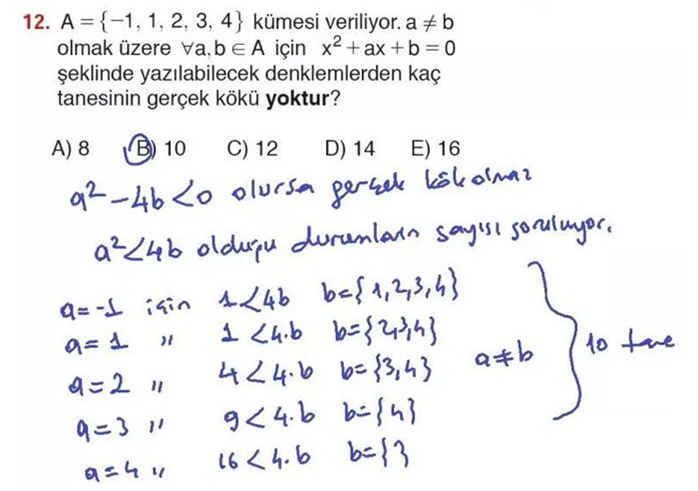 12. A = {−1, 1, 2, 3, 4} kümesi veriliyor. a ≠ b
olmak üzere ∀a, b ∈ A için x² + ax + b = 0
şeklinde yazılabilecek denklemlerden kaç
tanesinin gerçek kökü yoktur?
A) 8 B) 10 C) 12 D) 14 E) 16
a² − 4b < 0 olursa gerçek kök olmaz
a² < 4b olduğu durumların sayısı soruluyor.
a = −1 için 1 < 4b b = {1, 2, 3, 4}
a = 1 " 1 < 4.b b = {2, 3, 4}
a = 2 " 4 < 4.b b = {3, 4} a ≠ b 10 tane
a = 3 " 9 < 4.b b = {4}
a = 4 " 16 < 4.b b = { }